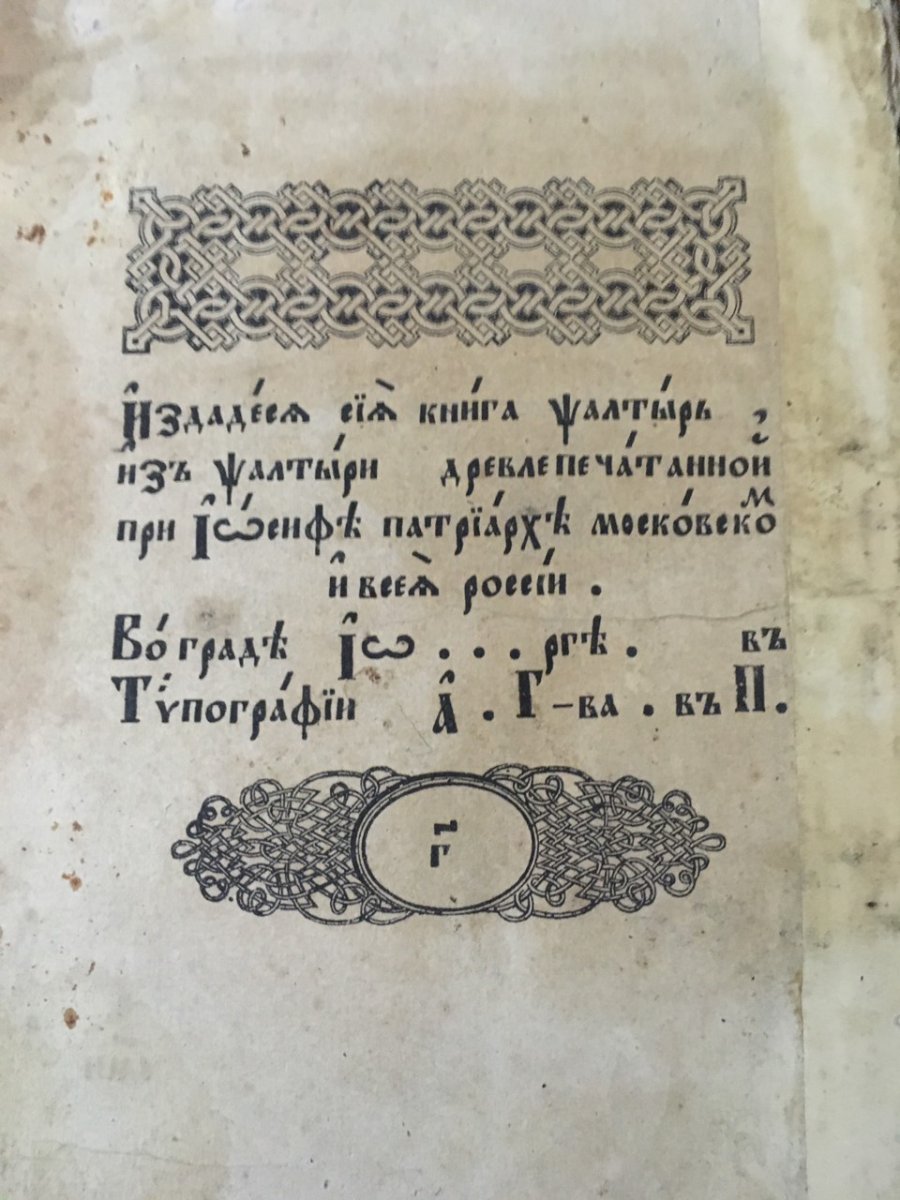 И҆здаде́сѧ сїѧ̀ кни́га ѱалты́рь
и҆зъ ѱалты́ри древлепеча́танной
при І҆ѡ́сифѣ патрїа́рхѣ моско́вскоⷨ
и҆ всеѧ̀ россі́и .
Во́ градѣ І҆ѡ . . . ргѣ . въ
Тѷпогра́фїи А҆ . Г–ва . въ П.
г҃